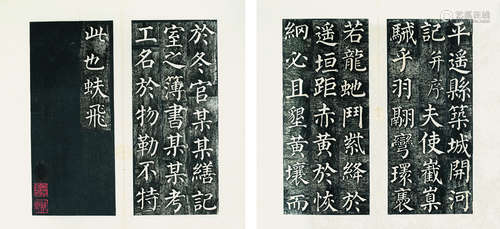 平遥縣築城開河
記并序夫使截窠
駥乎羽翮彎環裹
若龍虵鬥熒絳於
遥垣距赤黄於恢
納必且墾黄壤而
於冬官某某繕記
室之簿書某某考
工名於物勒不特
此也蚨飛